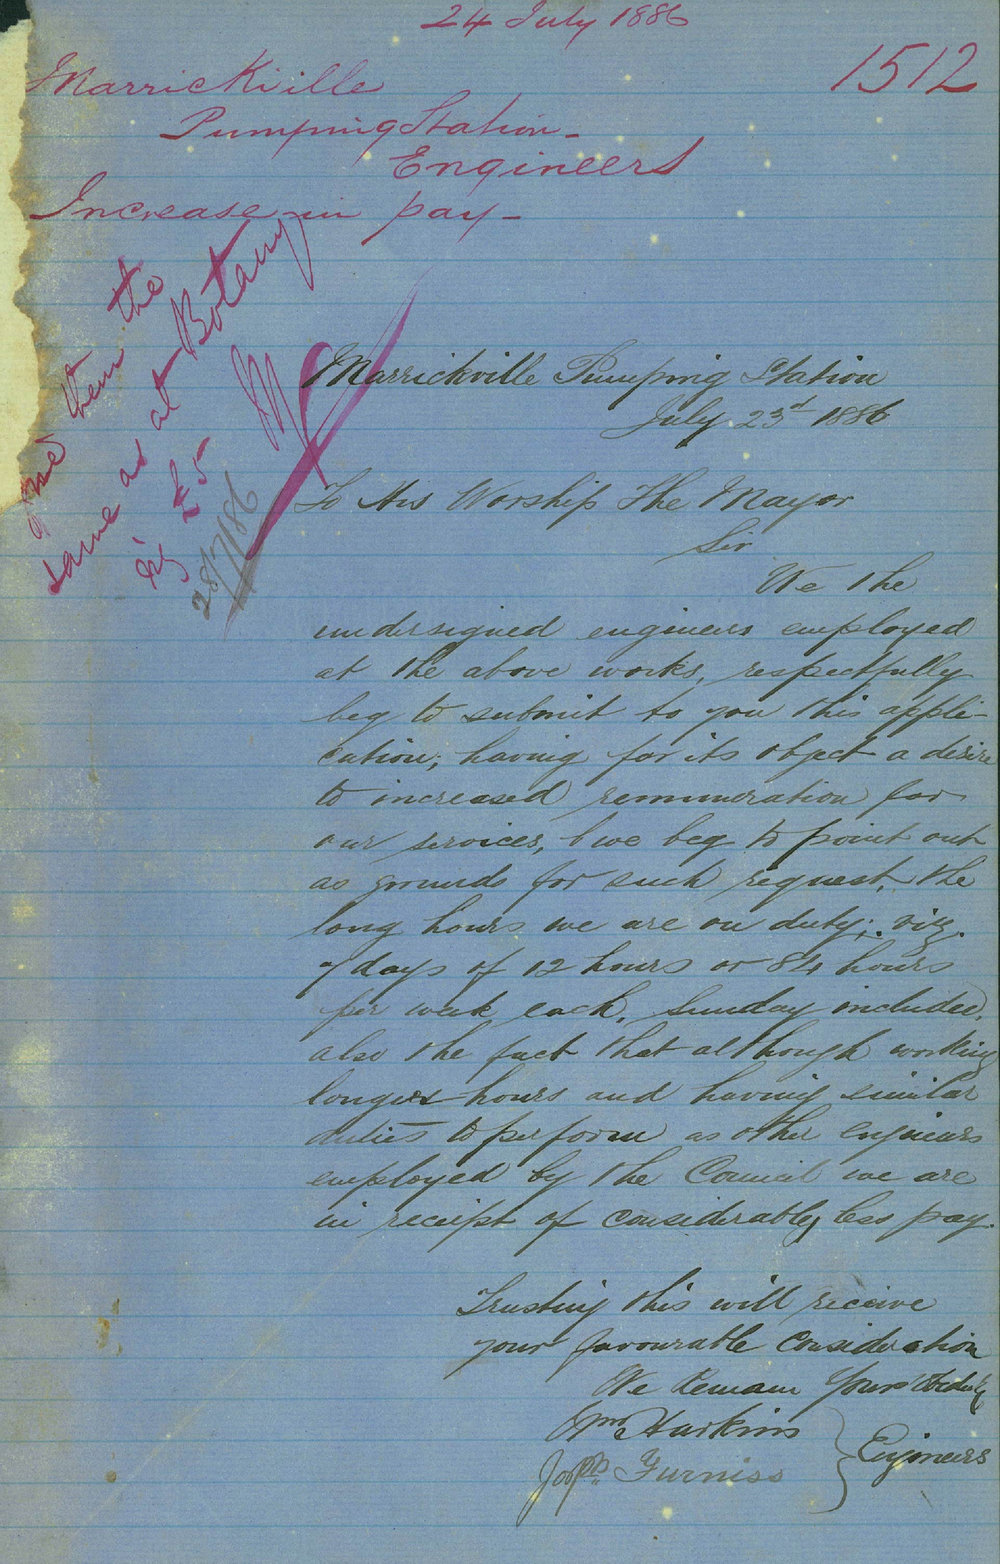 24 July 1886
1512
Marrickville
Pumping Station -
Engineers
Increase in pay -
give them the
same as at Botany
viz £5
28/7/86
Marrickville Pumping Station
July 23d 1886
To His Worship The Mayor
Sir
We the
undersigned engineers employed
at the above works, respectfully
beg to submit to you this appli-
cation, having for its object a desire
to increased remuneration for
our services, & we beg to point out
as grounds for such request, the
long hours we are on duty; viz.
7 days of 12 hours or 84 hours
per week each, Sunday included,
also the fact that although working
longer hours and having similar
duties to perform as other engineers
employed by the Council we are
in receipt of considerably less pay.
Trusting this will receive
your favourable consideration
We Remain Yours Obedtly
Wm Harkins
Josph Furniss
Engineers